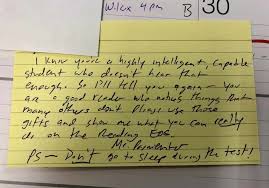 Wilcox 4pm B 30
I know you're a highly intelligent, capable
student who doesn't hear that
enough. So I'll tell you again – you
are a good reader who notices things that
many others don't. Please use those
gifts and show me what you can really
do on the Reading EOG.
Mr.
PS – Don't go to sleep during the test!